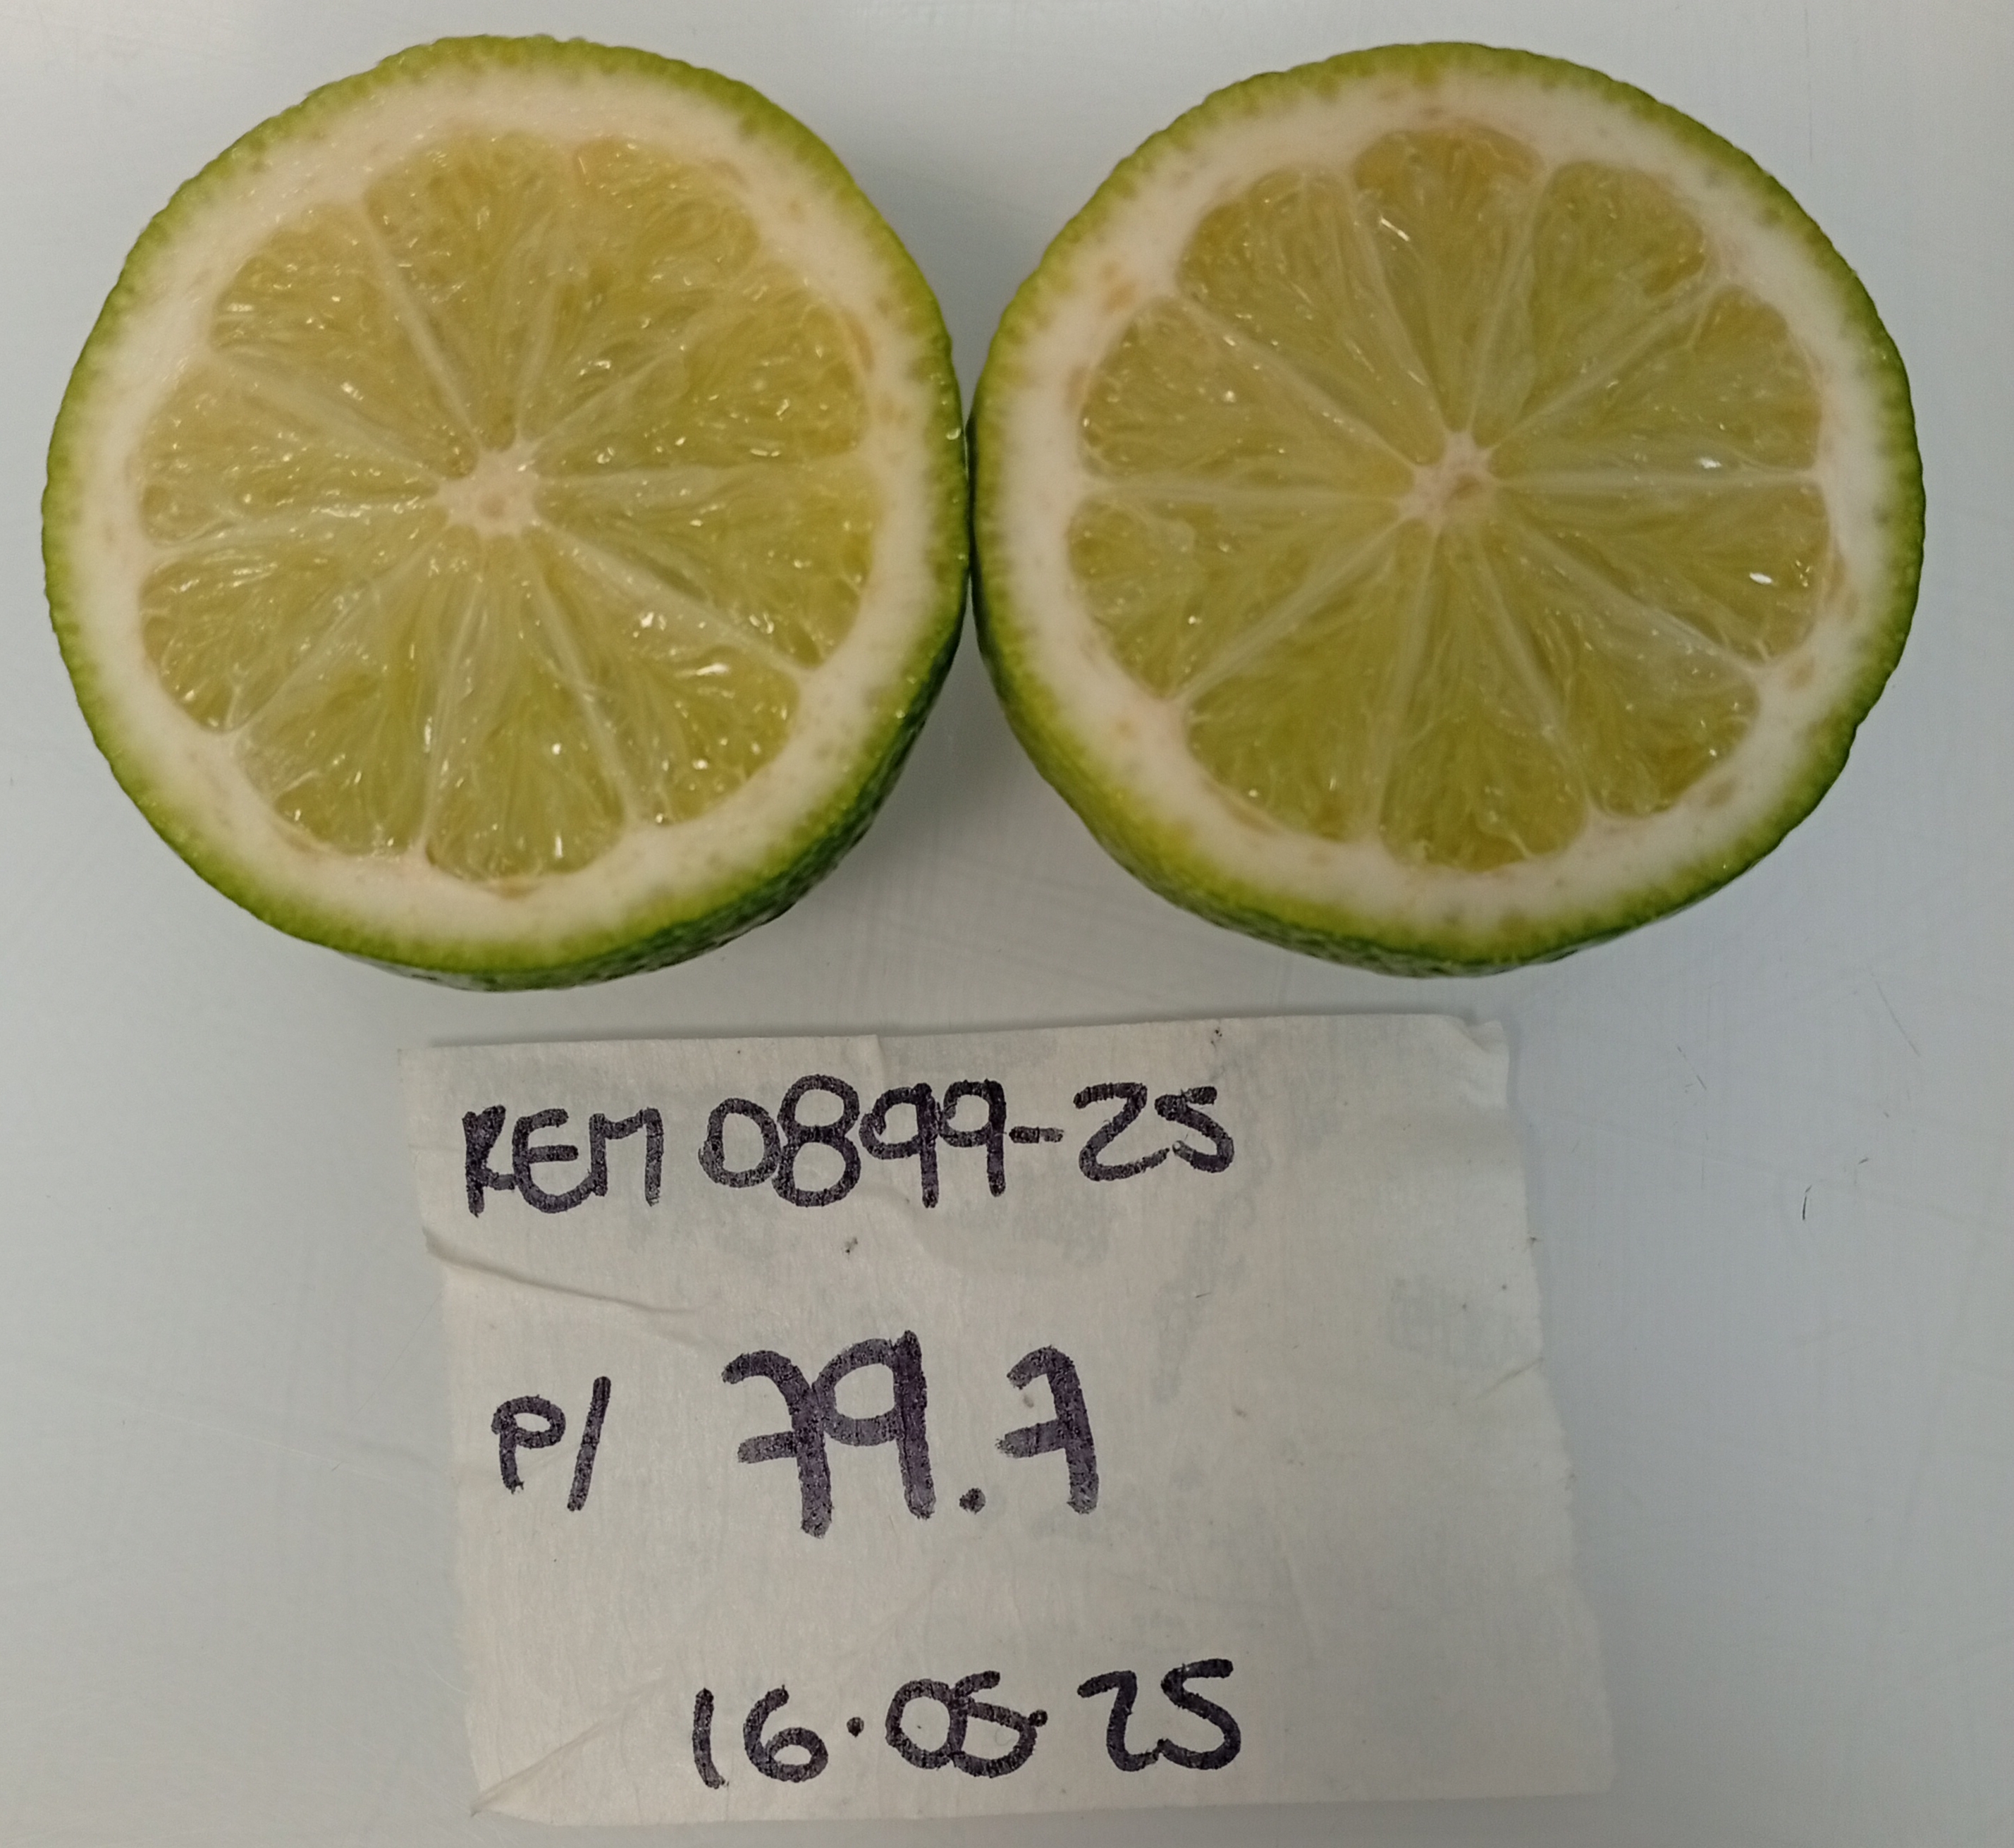 REM 0899-25
P/ 79.7
16.05.25